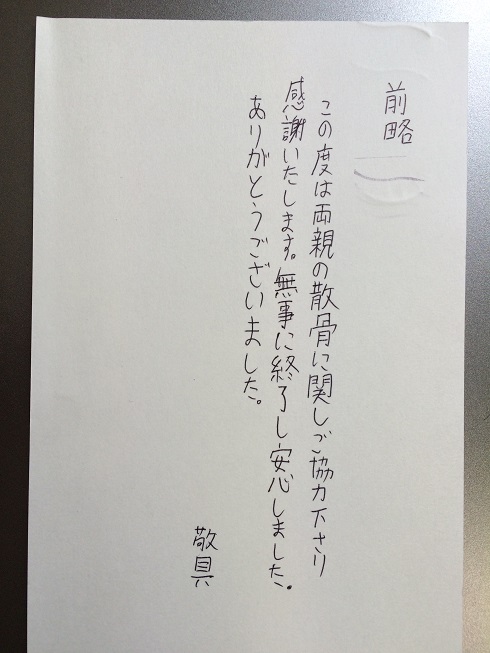 前略
この度は両親の散骨に関しご協力下さり
感謝いたします。無事に終了し安心しました。
ありがとうございました。
敬具